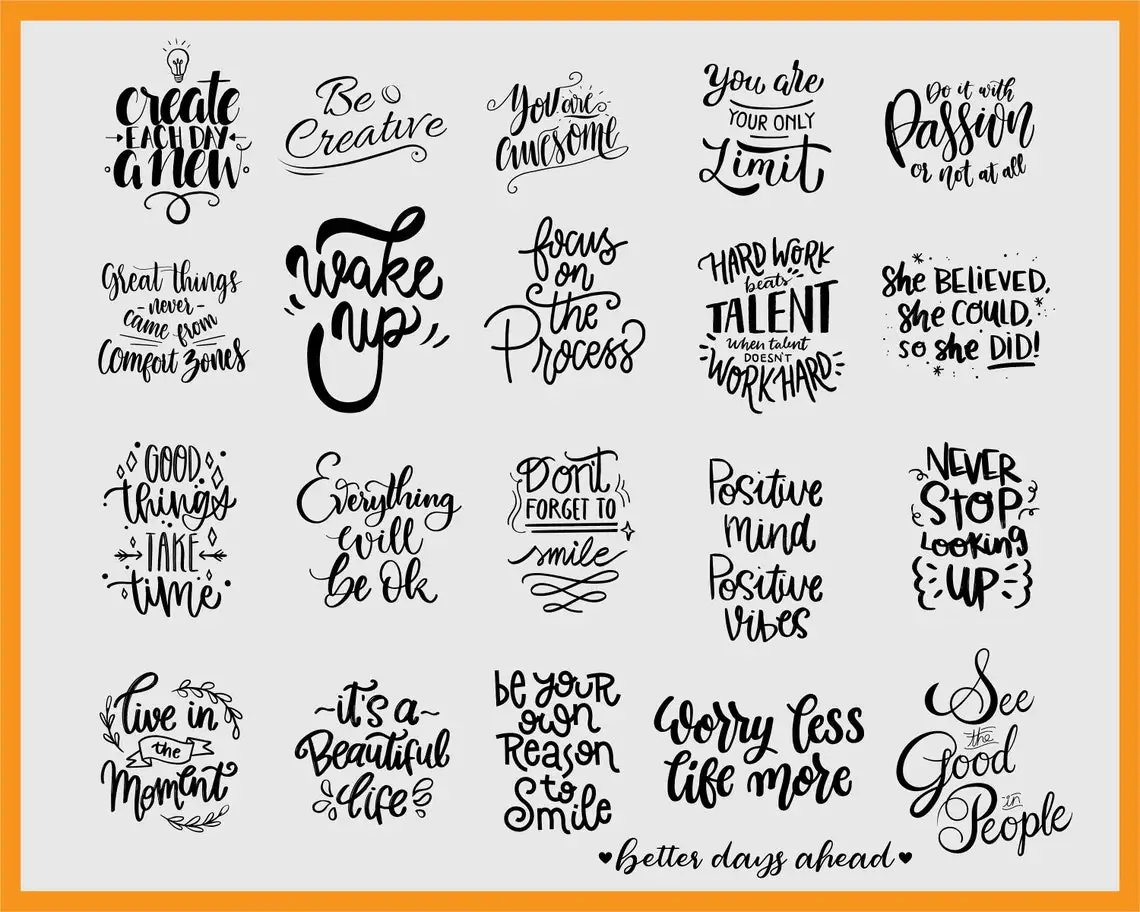 create
EACH DAY
anew
Be
Creative
You are
awesome
You are
YOUR ONLY
Limit
Do it with
Passion
or not at all
Great things
never
came from
Comfort zones
wake
up
focus
on
the
Process
HARD WORK
beats
TALENT
when talent
DOESN'T
WORK HARD
She BELiEVED,
she COULD,
so she DiD!
GOOD
things
TAKE
time
Everything
will
be Ok
Don't
FORGET TO
smile
Positive
mind
Positive
vibes
NEVER
STOP
LOOKiNG
UP
live in
the
Moment
~it's a~
Beautiful
life
be youR
own
Reason
to
Smile
worry less
life more
See
the
Good
in
People
♥better days ahead♥